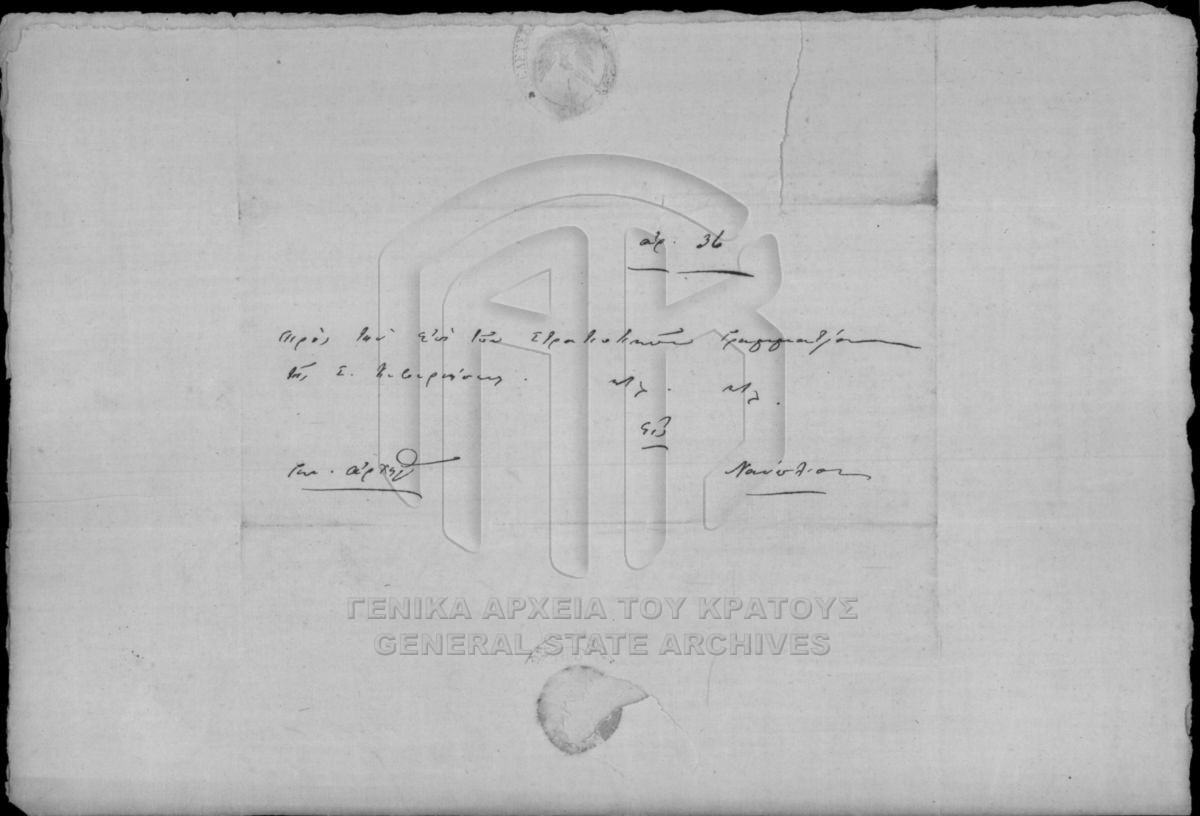 ἀρ. 36
πρὸς τὸν ἐπὶ τῶν Στρατιωτικῶν Γραμματέα
τῆς Σ. Κυβερνήσεως. κτλ. κτλ.
εἰς
Ναύπλιον
ΓΕΝΙΚΑ ΑΡΧΕΙΑ ΤΟΥ ΚΡΑΤΟΥΣ
GENERAL STATE ARCHIVES